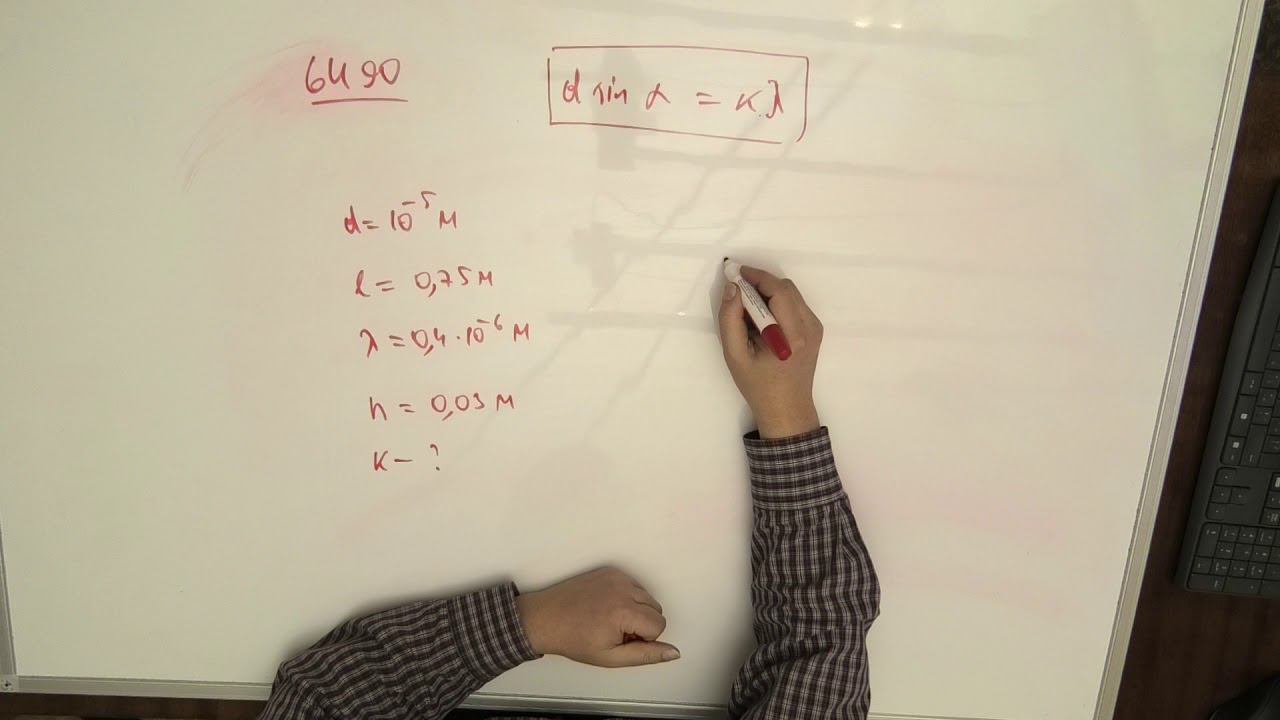 6490
d sin α = кλ
d = 10⁻⁵ м
l = 0,75 м
λ = 0,4 · 10⁻⁶ м
h = 0,03 м
к – ?